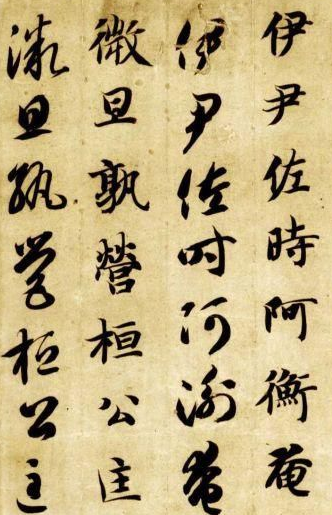 伊尹佐時阿衡奄
伊尹佐时阿衡奄
微旦孰營桓公匡
微旦孰營桓公匡